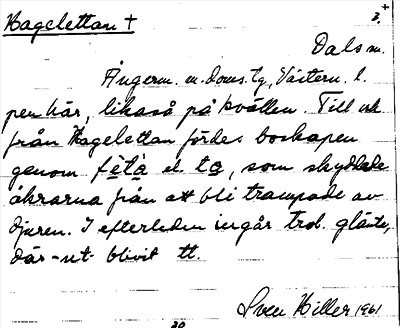 Hagelettan + 3.+
Dals sn.
Ångerm. n. doms. lg, Västern. l.
här, likaså på kvällen. Till
från Hagelettan fördes boskapen
genom fetà el tà, som skyddade
åkrarna från att bli trampade av
djuren. I efterleden ingår trol. glänte,
där -nt- blivit tt.
Sven Hiller 1961
30